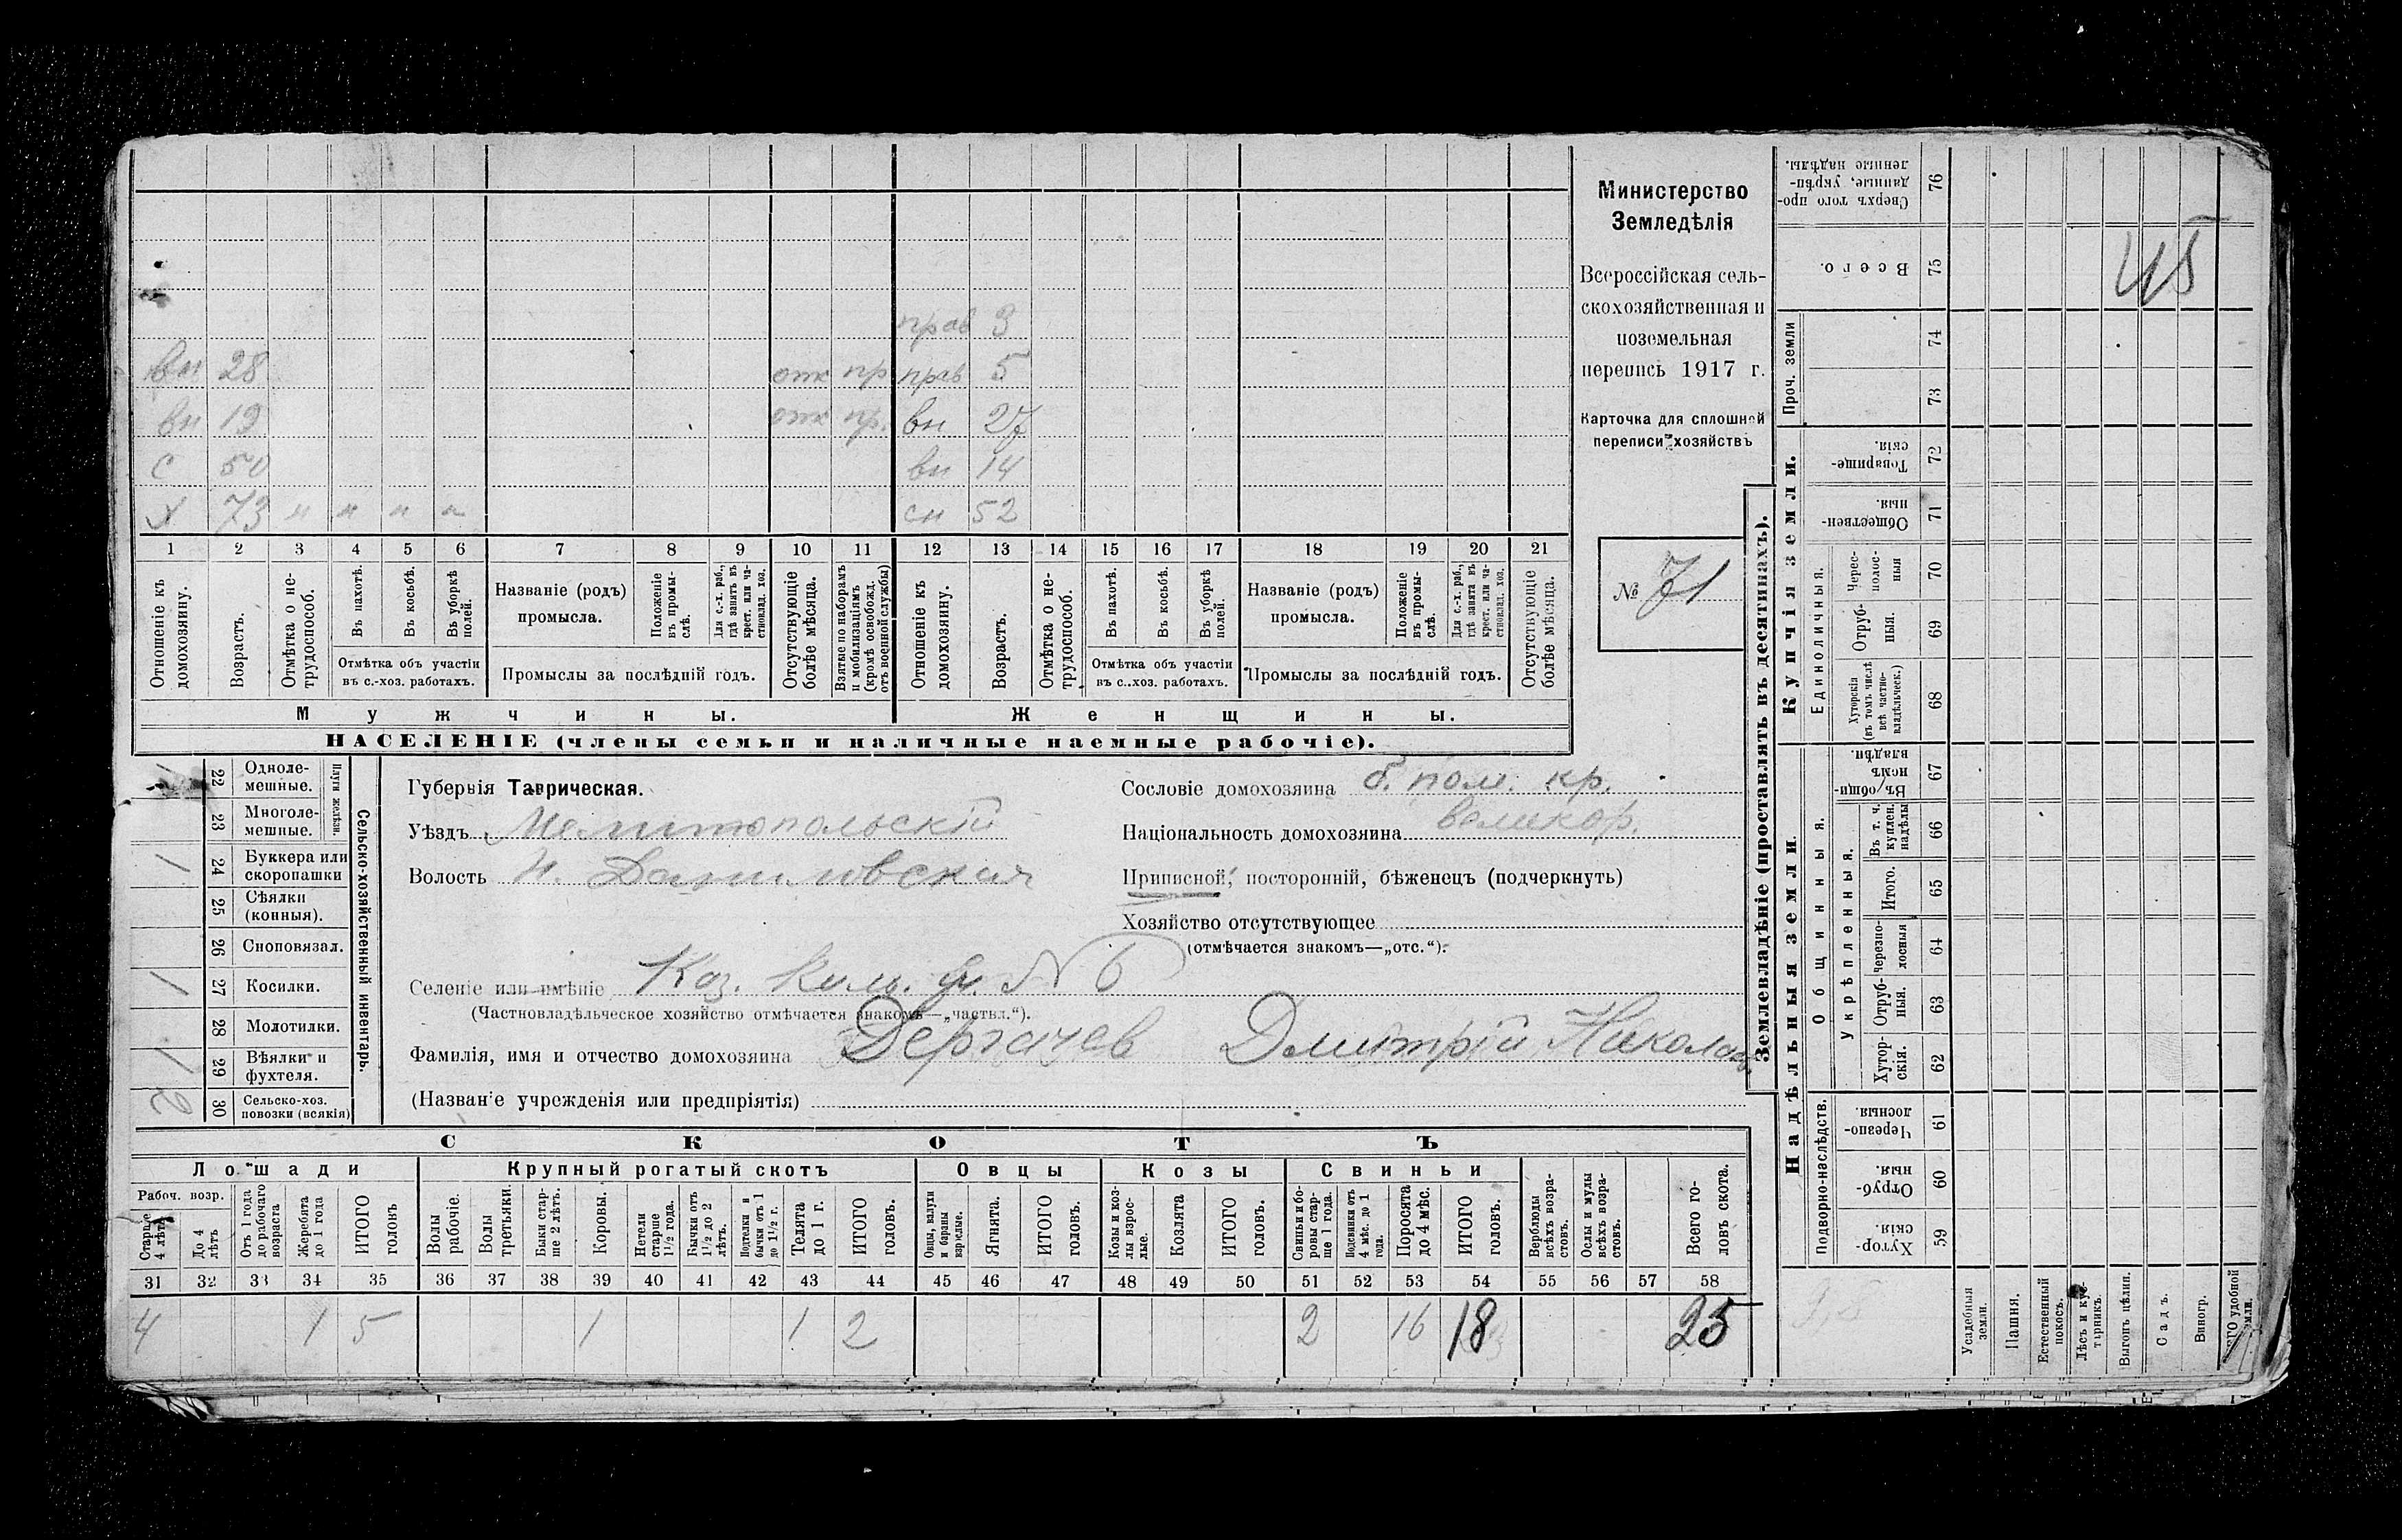 Министерство
Земледѣлія
Всероссійская сель-
скохозяйственная и
поземельная
перепись 1917 г.
Карточка для сплошной
переписи хозяйствъ
№ 71
прав 3
вн 28 отк пр прав 5
вн 19 отк пр. вн 27
с 50 вн 14
х 73 н н н н сн 52
1 2 3 4 5 6 7 8 9 10 11 12 13 14 15 16 17 18 19 20 21
Отношеніе къ домохозяину.
Возрастъ.
Отмѣтка о не-трудоспособ.
Въ пахотѣ.
Въ косьбѣ.
Въ уборкѣ полей.
Отмѣтка объ участіи
въ с.-хоз. работахъ.
Названіе (родъ)
промысла.
Положеніе въ промы-слѣ.
Для с.-х. раб., гдѣ занятъ въ крест. или ча-стновлад. хоз.
Промыслы за послѣдній годъ.
Отсутствующіе болѣе мѣсяца.
Взятые по наборамъ и мобилизаціямъ (кромѣ освобожд. отъ военной службы)
Отношеніе къ домохозяину.
Возрастъ.
Отмѣтка о не-трудоспособ.
Въ пахотѣ.
Въ косьбѣ.
Въ уборкѣ полей.
Отмѣтка объ участіи
въ с.-хоз. работахъ.
Названіе (родъ)
промысла.
Положеніе въ промы-слѣ.
Для с.-х. раб., гдѣ занята въ крест. или ча-стновлад. хоз.
Промыслы за послѣдній годъ.
Отсутствующіе болѣе мѣсяца.
Мужчины. Женщины.
НАСЕЛЕНІЕ (члены семьи и наличные наемные рабочіе).
Сельско-хозяйственный инвентарь.
Плуги желѣзн.
22 Одноле-мешные.
23 Многоле-мешные.
1 24 Буккера или скоропашки
25 Сѣялки (конныя).
26 Сноповязал.
1 27 Косилки.
28 Молотилки.
1 29 Вѣялки и фухтеля.
2 30 Сельско-хоз. повозки (всякія)
Губернія Таврическая.
Уѣздъ Мелитопольскій
Волость Н. Даниловская
Селеніе или имѣніе Каз. Коль. уч. N 6
(Частновладѣльческое хозяйство отмѣчается знакомъ—„частвл.“).
Фамилія, имя и отчество домохозяина Дергачев Дмитрій Николаев.
(Названіе учрежденія или предпріятія)
Сословіе домохозяина б. пом. кр.
Національность домохозяина великор.
Приписной, посторонній, бѣженецъ (подчеркнуть)
Хозяйство отсутствующее
(отмѣчается знакомъ—„отс.“).
СКОТЪ
Лошади Крупный рогатый скотъ Овцы Козы Свиньи
Рабоч. возр.
Старше 4 лѣтъ
До 4 лѣтъ
Отъ 1 года до рабочаго возраста
Жеребята до 1 года
ИТОГО головъ
Волы рабочіе.
Волы третьяки.
Быки стар-ше 2 лѣтъ.
Коровы.
Нетели старше 1½ года.
Бычки отъ 1½ до 2 лѣтъ.
Подтелки и бычки отъ 1 до 1½ г.
Телята до 1 г.
ИТОГО головъ.
Овцы, валухи и бараны взрослые.
Ягнята.
ИТОГО головъ.
Козы и коз-лы взрос-лые.
Козлята
ИТОГО головъ.
Свиньи и бо-ровы стар-ше 1 года.
Подсвинки отъ 4 мѣс. до 1 года.
Поросята до 4 мѣс.
ИТОГО головъ.
Верблюды всѣхъ возра-стовъ.
Ослы и мулы всѣхъ возра-стовъ.
Всего го-ловъ скота.
31 32 33 34 35 36 37 38 39 40 41 42 43 44 45 46 47 48 49 50 51 52 53 54 55 56 57 58
4 1 5 1 1 2 2 16 18 25
Землевладѣніе (проставлять въ десятинахъ).
Купчія земли.
Надѣльныя земли.
Сверхъ того про-данные, укрѣп-ленные надѣлы. 76
Всего. 75
45
Проч. земли
74
73
Товарище-скія. 72
Обществен-ныя. 71
Единоличныя.
Черес-полос-ныя 70
Отруб-ныя. 69
Хуторскія (въ томъ числѣ всѣ частно-владѣльческ.) 68
Общинныя.
Въ общин-номъ владѣн. 67
Укрѣпленныя.
Въ т. ч. куплен. надѣлы 66
Итого. 65
Черезпо-лосныя 64
Отруб-ныя. 63
Хутор-скія. 62
Подворно-наслѣдств.
Черезпо-лосныя. 61
Отруб-ныя. 60
Хутор-скія. 59
Усадебныя земли.
Пашня.
Естественный покосъ.
Лѣсъ и кус-тарникъ.
Выгонъ цѣлин.
Садъ.
Виногр.